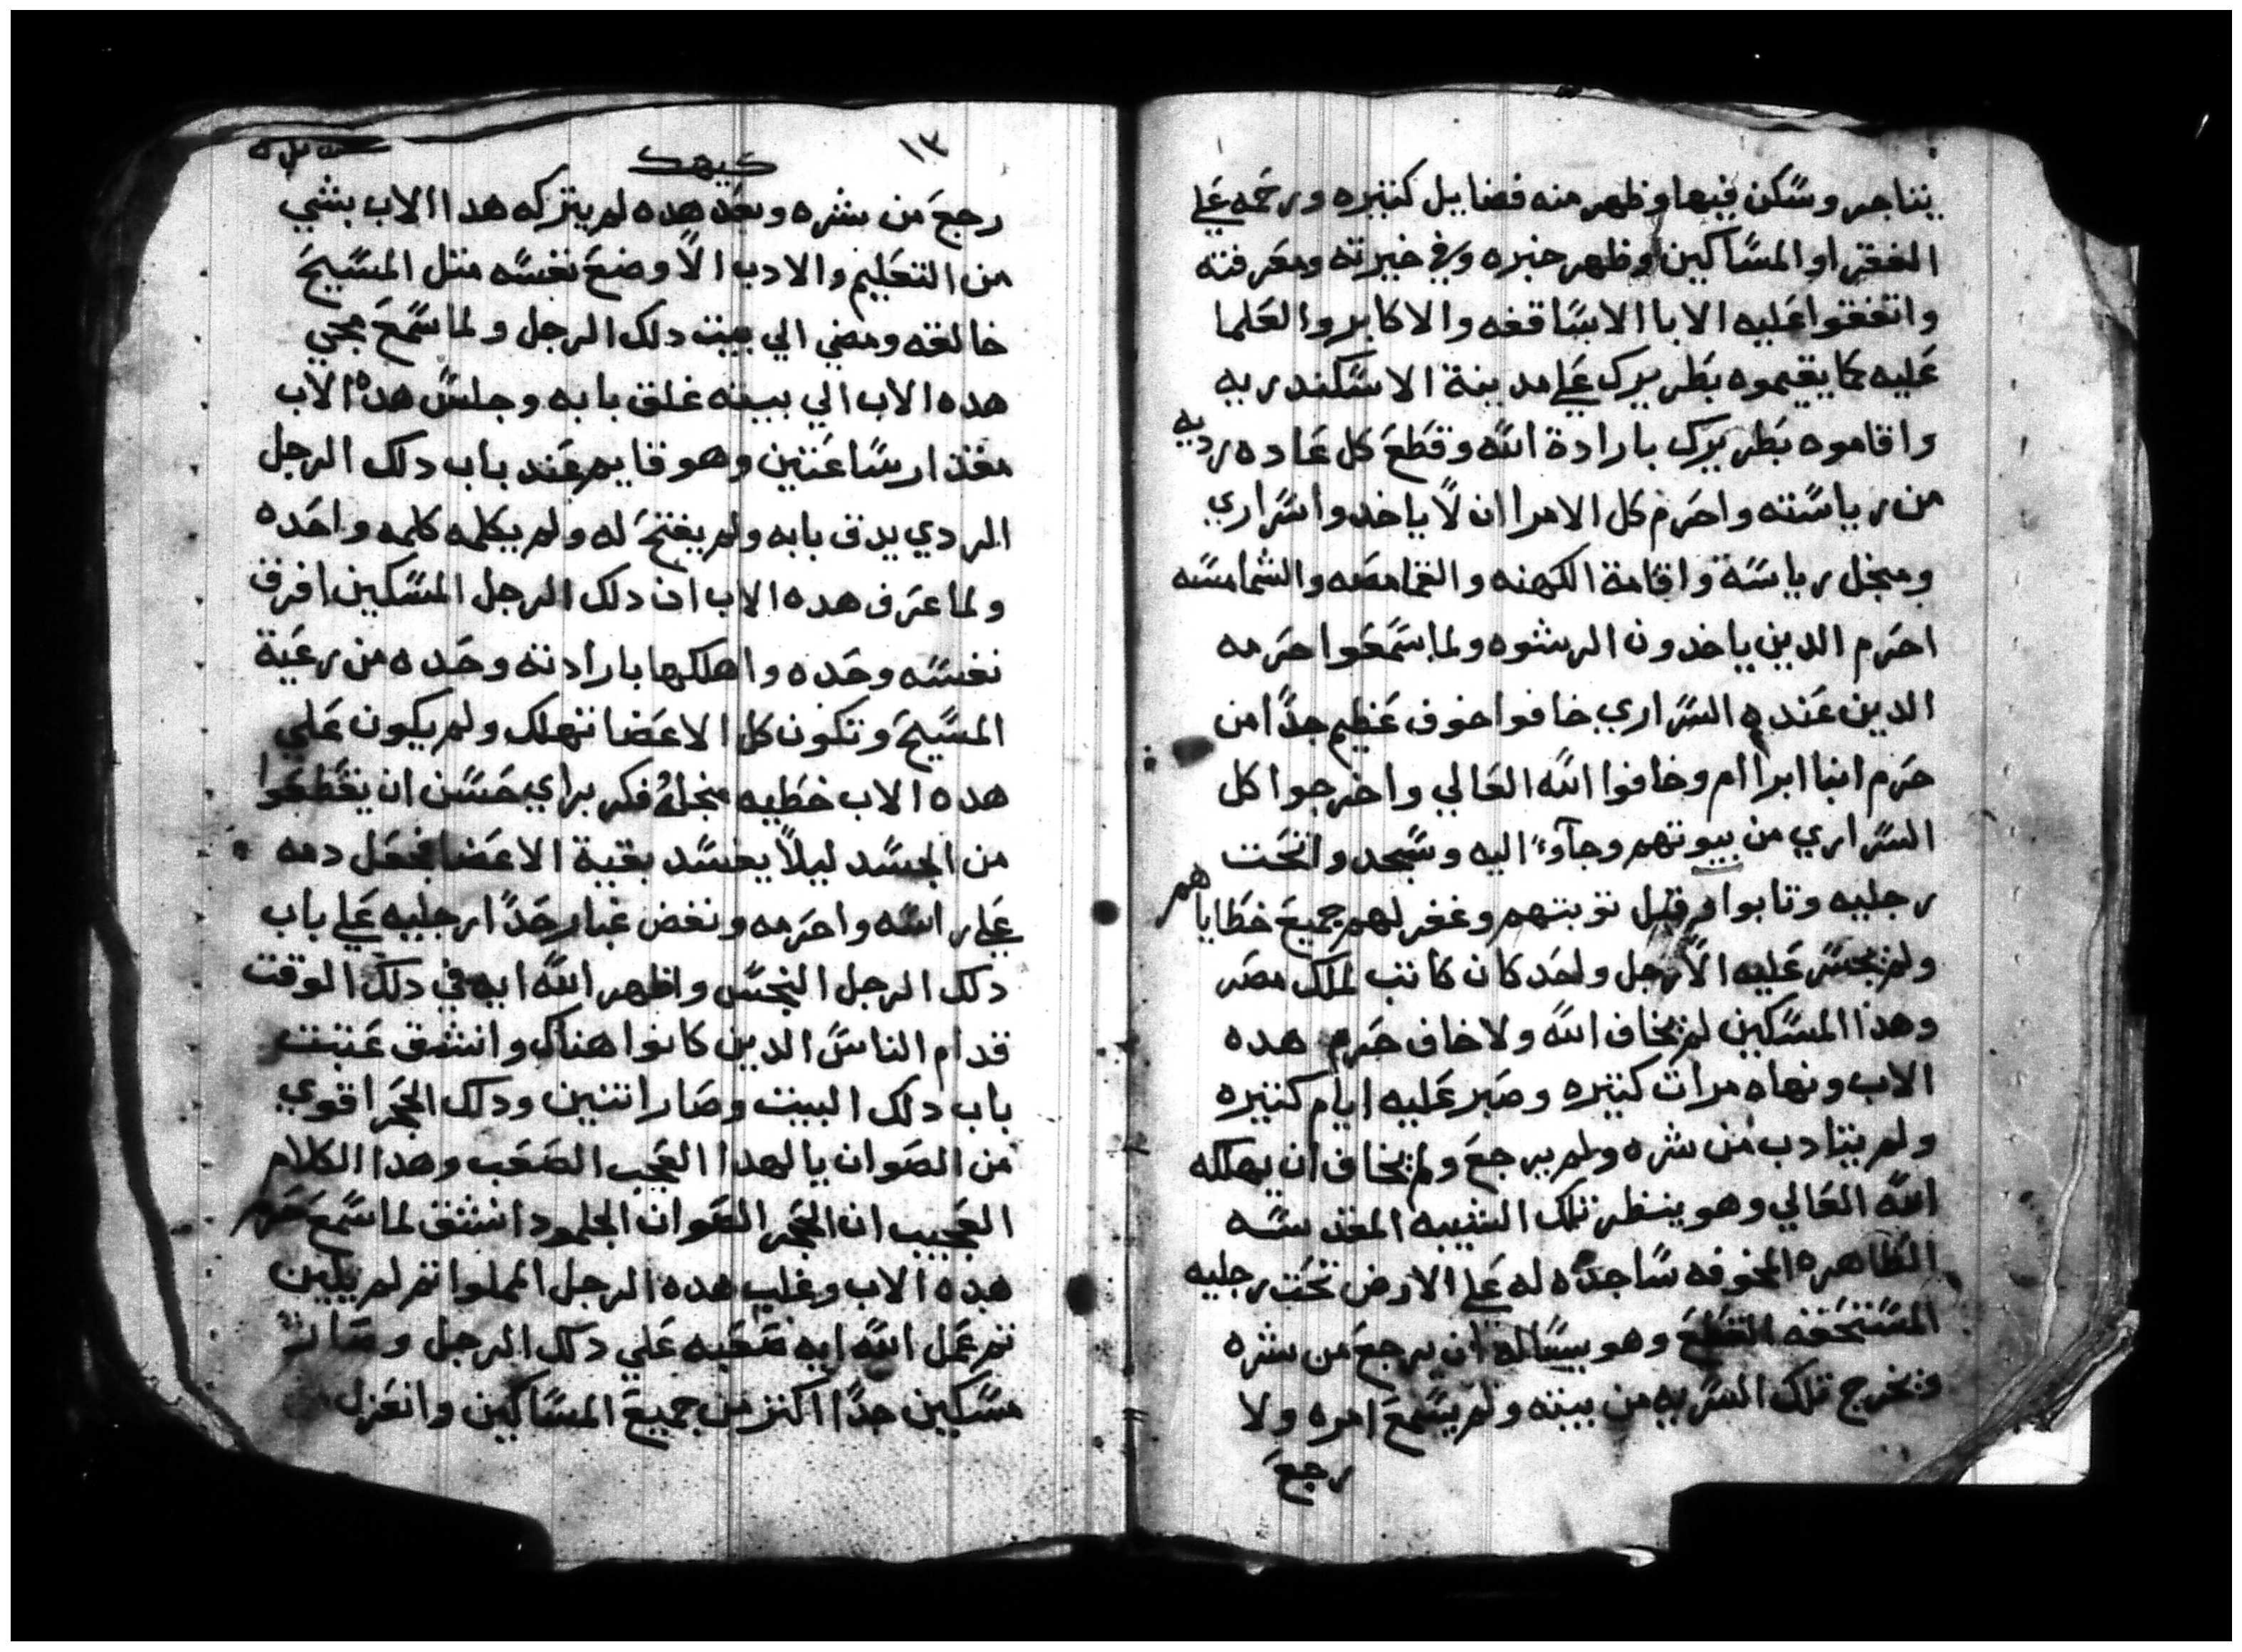 يتاجر وسكن فيها وظهر منه فضايل كتيره ورحمه علي
الفقرا والمساكين وظهر خبره وفي خيرته ومعرفته
واتفقوا عليه الابا الاساقفه والاكابر والعلما
عليه كما يقيموه بطريرك علي مدينة الاسكندريه
واقاموه بطريرك بارادة الله وقطع كل عاده رديه
من رياسته واحرم كل الامرا ان لا ياخدوا سراري
ومبجل رياسة واقامة الكهنه والقمامصه والشمامسه
احرم الدين ياخدون الرشوه ولما سمعوا حرمه
الدين عنده السراري خافوا خوف عظيم جدا من
حرم انبا ابراام وخافوا الله العالي واخرجوا كل
السراري من بيوتهم وجاوا اليه وسجدوا تحت
رجليه وتابوا وقبل توبتهم وغفر لهم جميع خطاياهم
ولم يجسر عليه الا رجل واحد كان كاتب لملك مصر
وهدا المسكين لم يخاف الله ولا خاف حرم هده
الاب ونهاه مرات كتيره وصبر عليه ايام كتيره
ولم يتادب من شره ولم يرجع ولم يخاف ان يهلكه
الله العالي وهو ينظر تلك الشيبه المقدسه
الطاهره المخوفه ساجده له علي الارض تحت رجليه
المستحقه القطع وهو يساله ان يرجع من شره
وتخرج تلك السريه من بيته ولم يسمع امره ولا
رجع
١٣
كيهك
رجع من شره وبعد هده لم يتركه هدا الاب بشي
من التعليم والادب الا وضع نفسه متل المسيح
خالقه ومضي الي بيت دلك الرجل ولما سمع بمجي
هده الاب الي بيته غلق بابه وجلس هده الاب
مقدار ساعتين وهو قايم عند باب دلك الرجل
الردي يدق بابه ولم يفتح له ولم يكلمه كلمه واحده
ولما عرف هده الاب ان دلك الرجل المسكين افرق
نفسه وحده واهلكها بارادته وحده من رعية
المسيح وتكون كل الاعضا تهلك ولم يكون علي
هده الاب خطيه فكر براي حسن ان يقطعوا
من الجسد ليلا يفسد بقية الاعضا فجعل دمه
علي راسه واحرمه ونفض غبار حدا رجليه علي باب
دلك الرجل النجس واظهر الله ايه في دلك الوقت
قدام الناس الدين كانوا هناك وانشق عتبت
باب دلك البيت وصار اتنين ودلك الحجر اقوي
من الصوان يا لهدا العجب الصعب وهدا الكلام
العجيب ان الحجر الصوان الجلمود انشق لما سمع حرم
هده الاب وقلب هده الرجل المملوا تم لم يلين
تم عمل الله ايه صعبه علي دلك الرجل وصار
مسكين جدا اكتر من جميع المساكين وانعزل